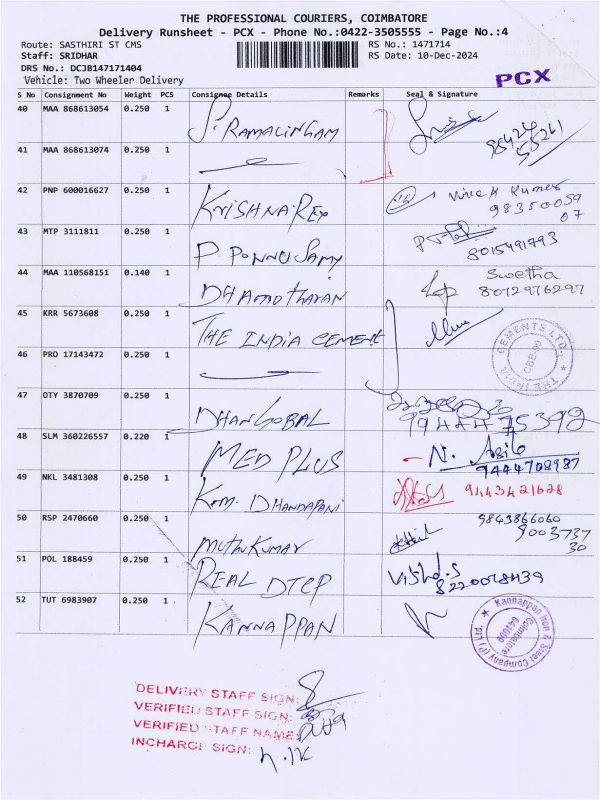 THE PROFESSIONAL COURIERS, COIMBATORE
Delivery Runsheet - PCX - Phone No.:0422-3505555 - Page No.:4
Route: SASTHIRI ST CMS RS No.: 1471714
Staff: SRIDHAR RS Date: 10-Dec-2024
DRS No.: DCJB147171404
Vehicle: Two Wheeler Delivery
PCX
S No Consignment No Weight PCS Consignee Details Remarks Seal & Signature
40 MAA 868613054 0.250 1 S. RAMALINGAM
41 MAA 868613074 0.250 1
42 PNP 600016627 0.250 1 KRISHNA.REX Vivek Kumar
98350059
07
43 MTP 3111811 0.250 1 P. PONNUSAMY 8015491793
44 MAA 110568151 0.140 1 DHAMOTHARAN Swetha
8072976297
45 KRR 5673608 0.250 1 THE INDIA CEMENT THE INDIA CEMENTS LTD.,
46 PRO 17143472 0.250 1
47 OTY 3870709 0.250 1 DHANGOBAL 9944475392
48 SLM 360226557 0.220 1 MED PLUS N.
9444708987
49 NKL 3481308 0.250 1 KM. DHANDAPANI 9443421628
50 RSP 2470660 0.250 1 MUTHUKUMAR 9843866060
9003737
30
51 POL 188459 0.250 1 REAL DTCP Vishal.S
8220078439
52 TUT 6983907 0.250 1 KANNAPPAN Kannappan Iron & Steel Company (P) Ltd.
Coimbatore
641009
DELIVERY STAFF SIGN:
VERIFIED STAFF SIGN:
VERIFIED STAFF NAME:
INCHARGE SIGN: